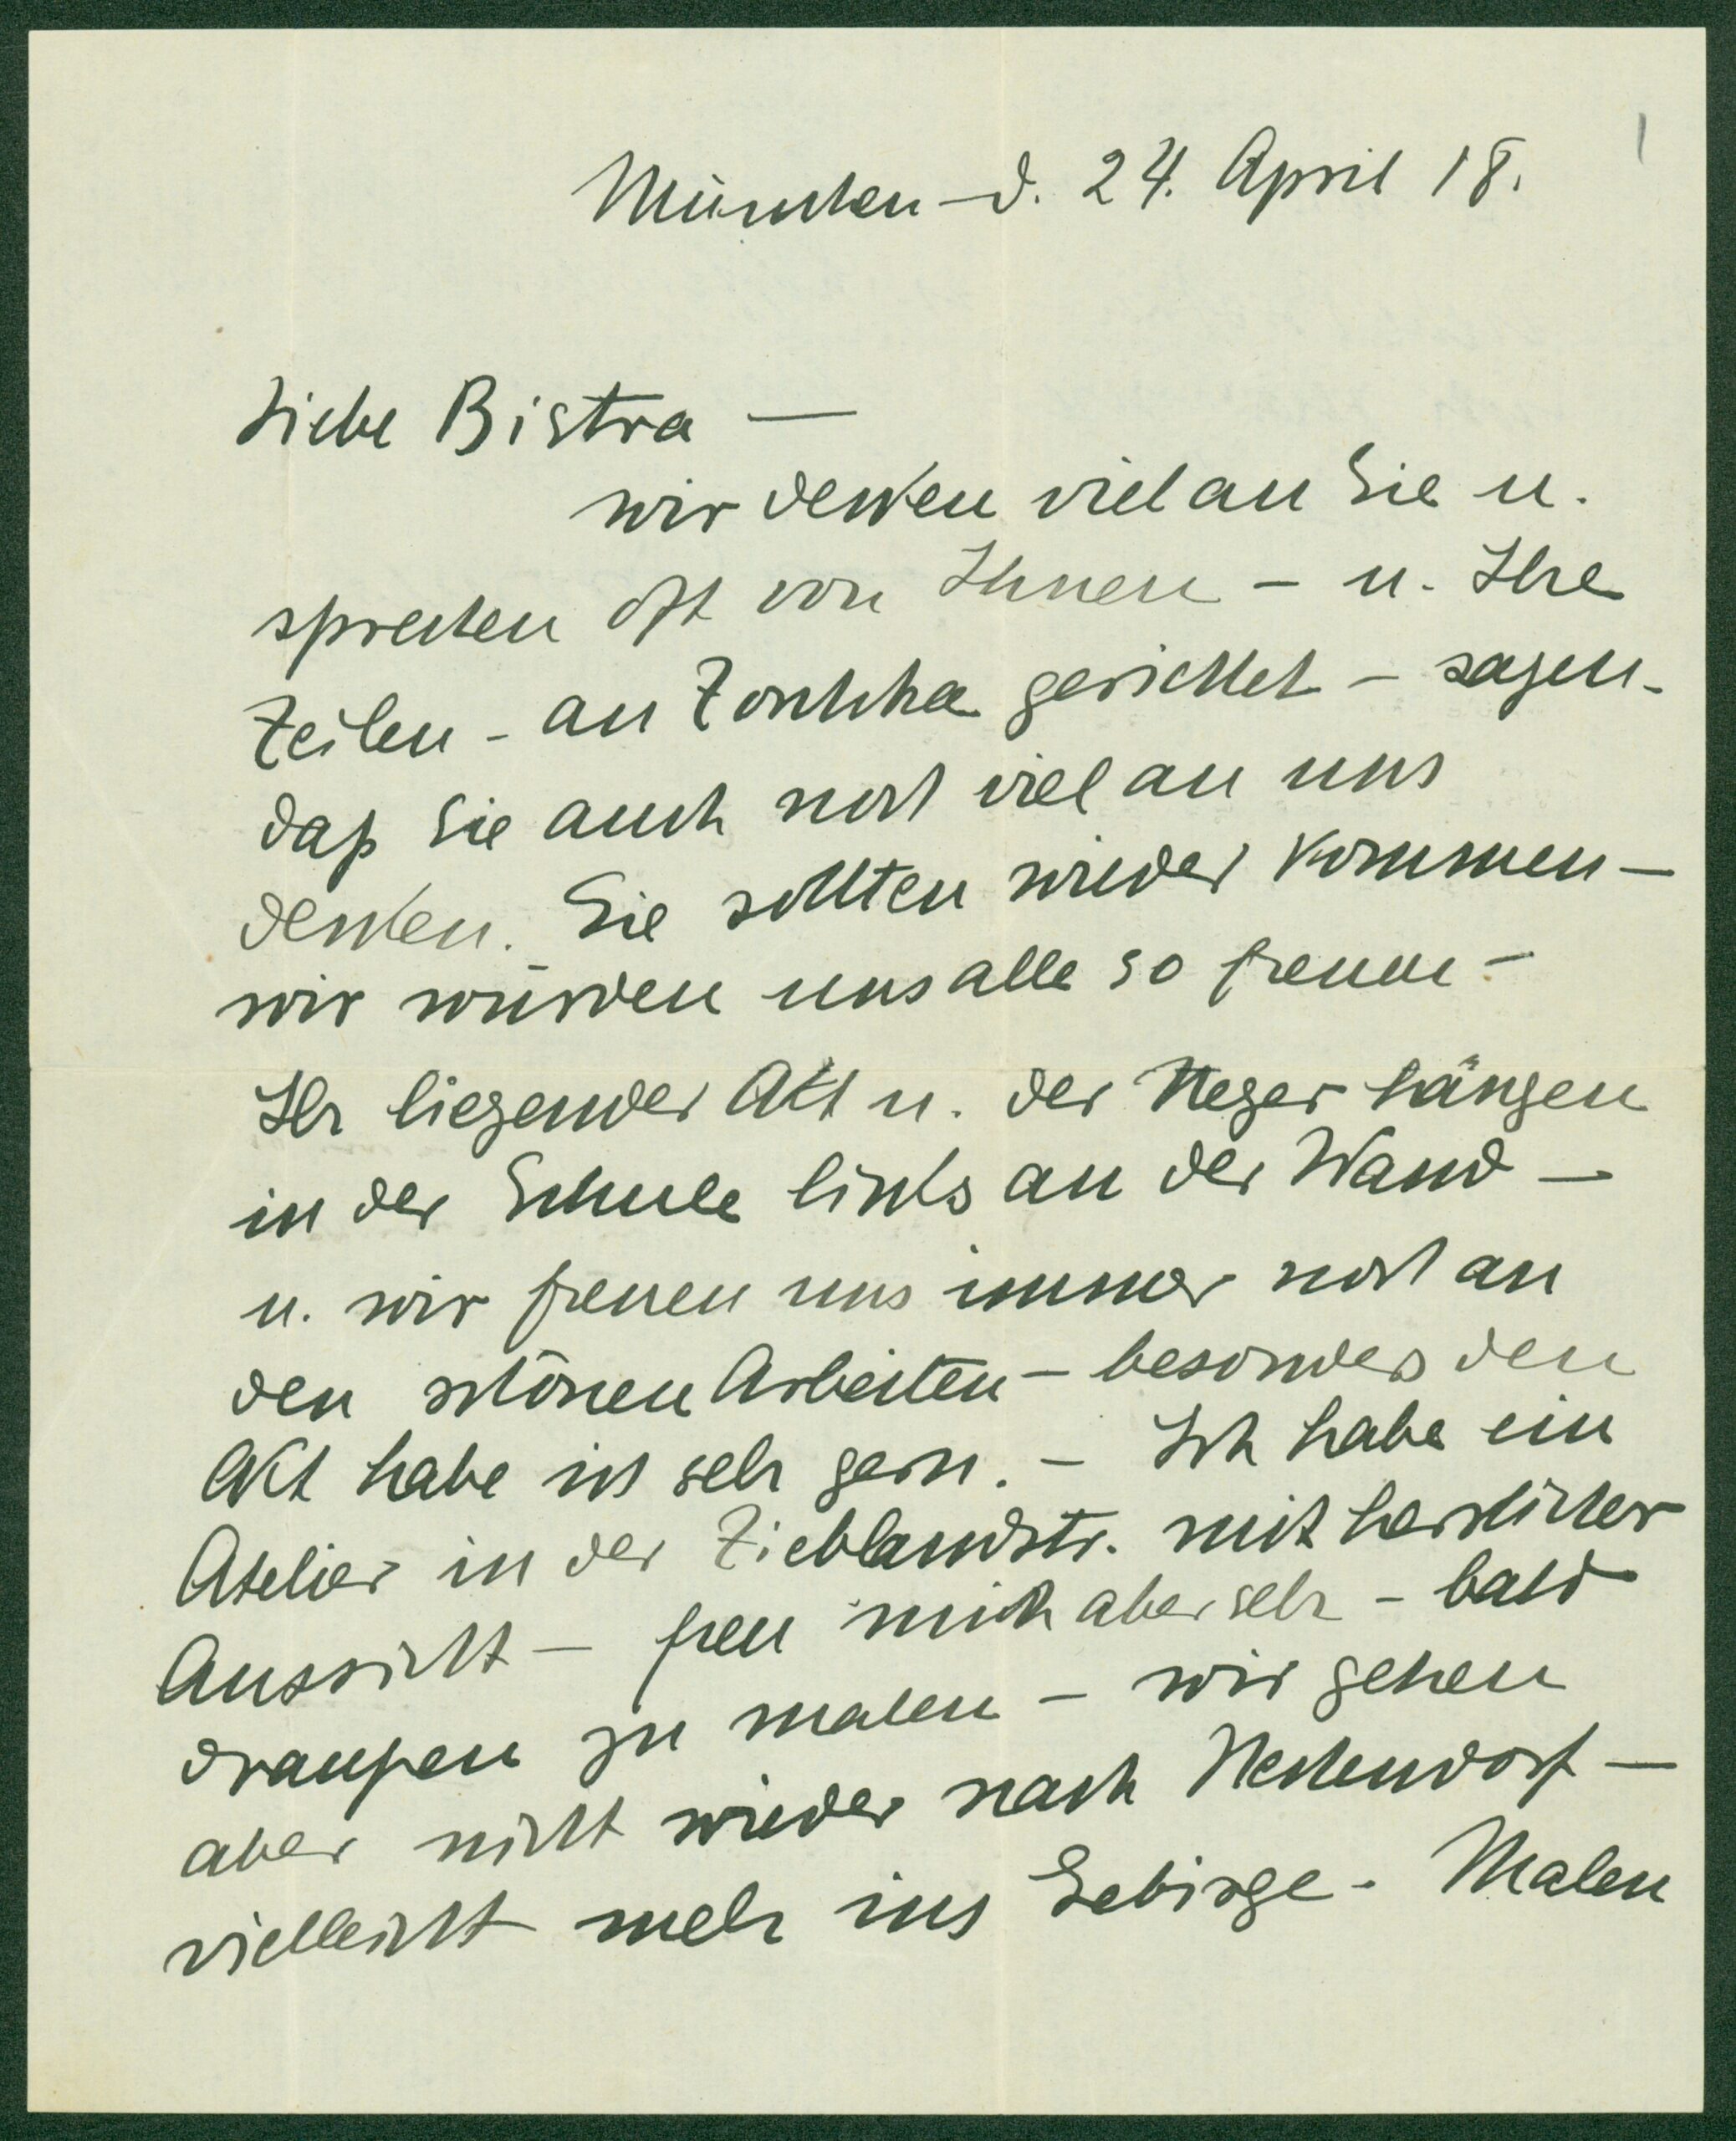 1
München - d. 24. April 18.
Liebe Bistra —
wir denken viel an Sie u.
sprechen oft von Ihnen – u. Ihre
Zeilen – an gerichtet – sagen –
daß Sie auch noch viel an uns
denken. Sie sollten wieder kommen –
wir würden uns alle so freuen –
Ihr liegender Akt u. der Neger hängen
in der Schule links an der Wand –
u. wir freuen uns immer noch an
den schönen Arbeiten – besonders den
Akt habe ich sehr gern. – Ich habe ein
Atelier in der Zieblandstr. mit herrlicher
Aussicht – freu mich aber sehr – bald
draußen zu malen – wir gehen
aber nicht wieder nach –
vielleicht mehr ins Gebirge. Malen